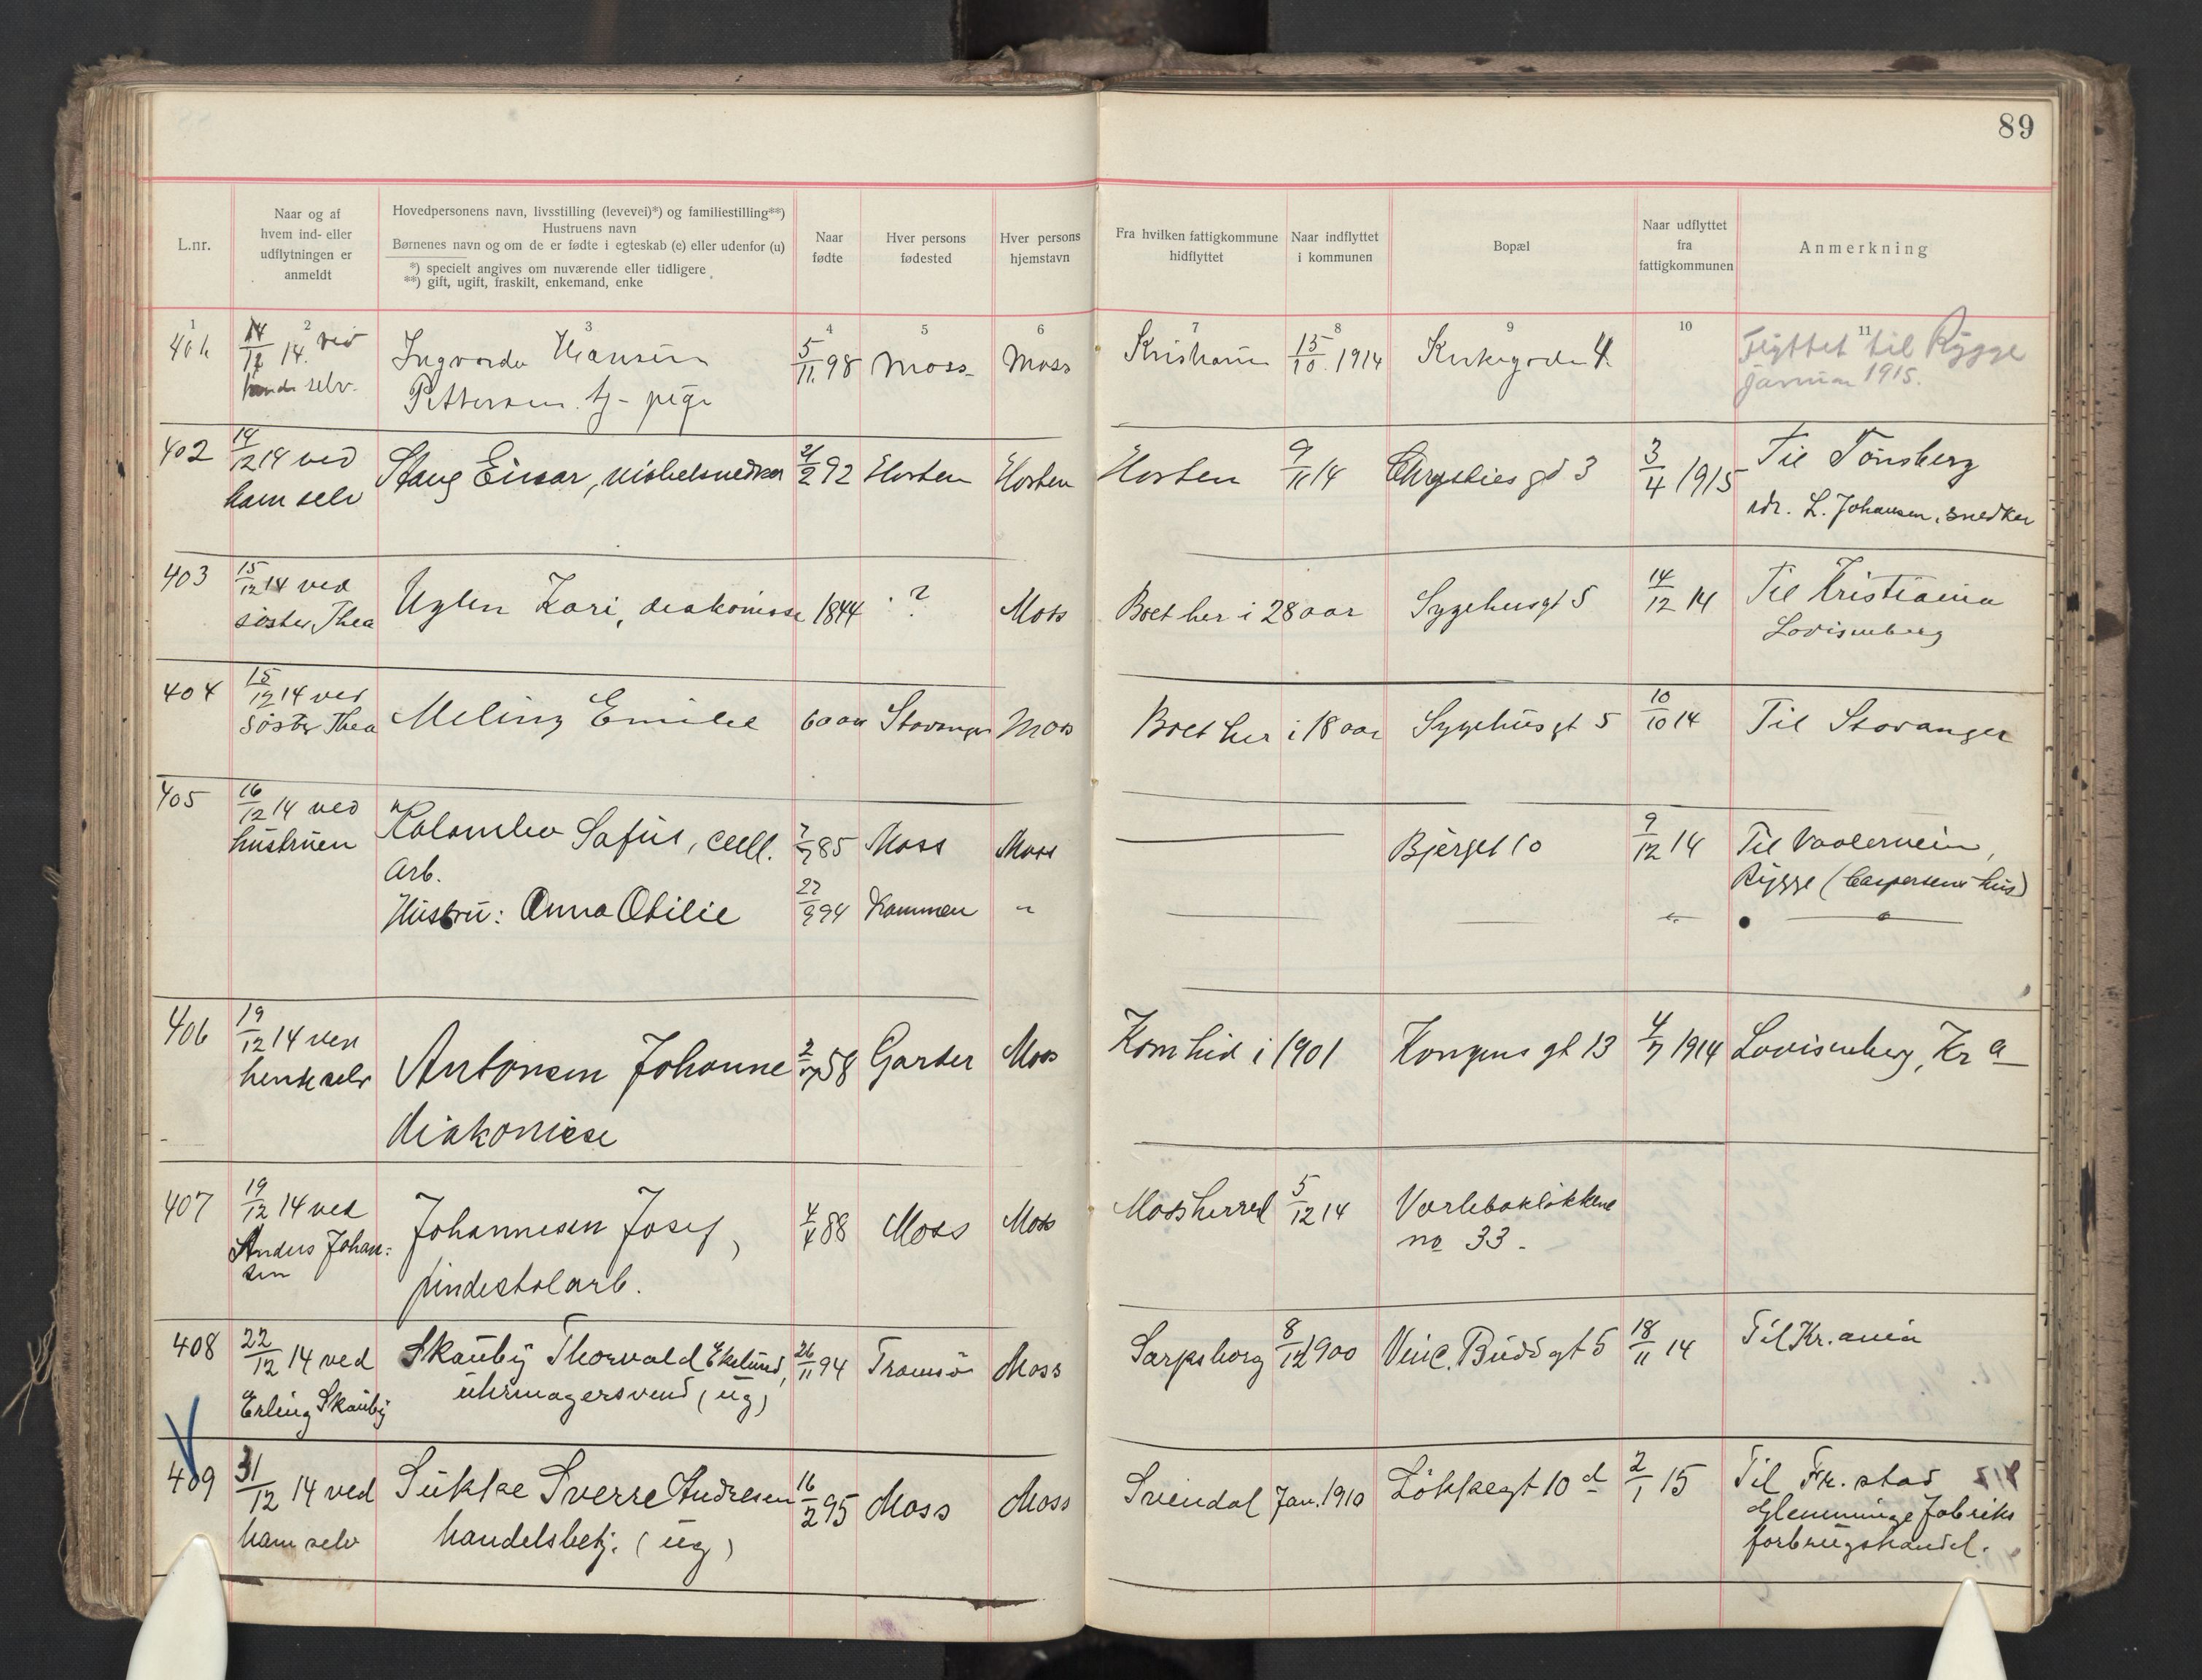 89
L.nr.
Naar og af hvem ind- eller udflytningen er anmeldt
Hovedpersonens navn, livsstilling (levevei)*) og familiestilling**)
Hustruens navn
Børnenes navn og om de er fødte i egteskab (e) eller udenfor (u)
*) specielt angives om nuværende eller tidligere
**) gift, ugift, fraskilt, enkemand, enke
Naar fødte
Hver persons fødested
Hver persons hjemstavn
Fra hvilken fattigkommune hidflyttet
Naar indflyttet i kommunen
Bopæl
Naar udflyttet fra fattigkommunen
Anmerkning
1 2 3 4 5 6 7 8 9 10 11
14/12 14. ved Ingvarda Hansen 5/11 98 Moss Moss 15/10 1914 4 Flyttet til Rygge
selv. Pettersen tj-pige januar 1915.
402 14/12 14 ved Stang Einar, møbelsnedker 21/2 92 Horten Horten Horten 9/11 14 Chrystiesgd 3 3/4 1915 Til Tønsberg
ham selv adr. L. Johansen, snedker
403 15/12 14 ved Uglen Kari, diakonisse 1844 ? Moss Boet her i 28 aar Sygehusgt 5 14/12 14 Til Kristiania
søster Thea Lovisenberg
404 15/12 14 ved Meling Emilie 60 aar Stavanger Moss Boet her i 18 aar Sygehusgt 5 10/10 14 Til Stavanger
søster Thea
405 16/12 14 ved Kolombo Safus, cell. 85 Moss Moss Bjerget 10 9/12 14 Til Vaalerveien,
hustruen arb. Rygge (Caspersens hus)
Hustru: Anna Otilie 27/9 94 "
406 19/12 14 ved Antonsen Johanne 2/7 58 Garder Moss Kom hid i 1901 Kongens gt 13 4/7 1914 Lovisenberg, Kr a
hende selv diakonisse
407 19/12 14 ved Johannesen Josef, 4/4 88 Moss Moss Moss herred 5/12 14 Varlebakløkkene
Anders Johan= pindestolarb. no 33.
sen
408 22/12 14 ved Skauby Thorvald Ekelund, 26/11 94 Tromsø Moss Sarpsborg 8/12 1900 Vinc. Budsgt 5 18/11 14 Til Kr.ania
Erling Skauby uhrmagersvend (ug)
409 31/12 14 ved Sukke Sverre Andresen 16/2 95 Moss Moss Svendal Jan. 1910 Løkkegt 10 d 2/1 15 Til Fr.stad
ham selv handelsbetj. (ug) Glemminge fabriks
forbrugshandel.